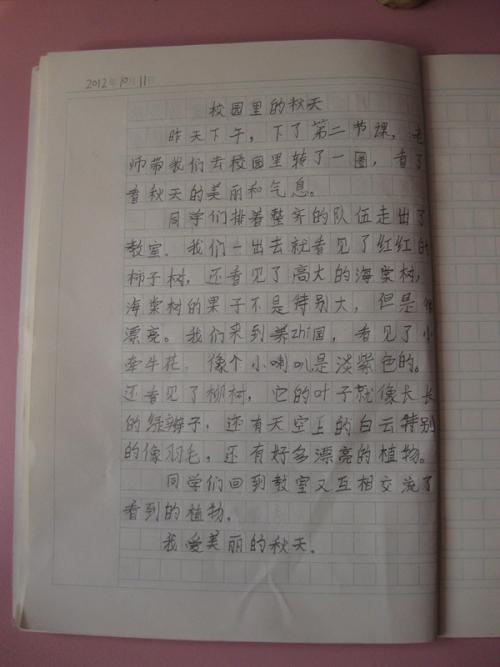 2012年10月11日
校园里的秋天
昨天下午，下了第二节课，老
师带我们去校园里转了一圈，看了
看秋天的美丽和气息。
同学们排着整齐的队伍走出了
教室．我们一出去就看见了红红的
柿子树，还看见了高大的海棠树，
海棠树的果子不是特别大，但是
漂亮。我们来到养zhi园，看见了小
牵牛花，像个小喇叭是淡紫色的。
还看见了柳树，它的叶子就像长长
的绿辫子，还有天空上的白云特别
的像羽毛，还有好多漂亮的植物。
同学们回到教室又互相交流了
看到的植物。
我爱美丽的秋天。